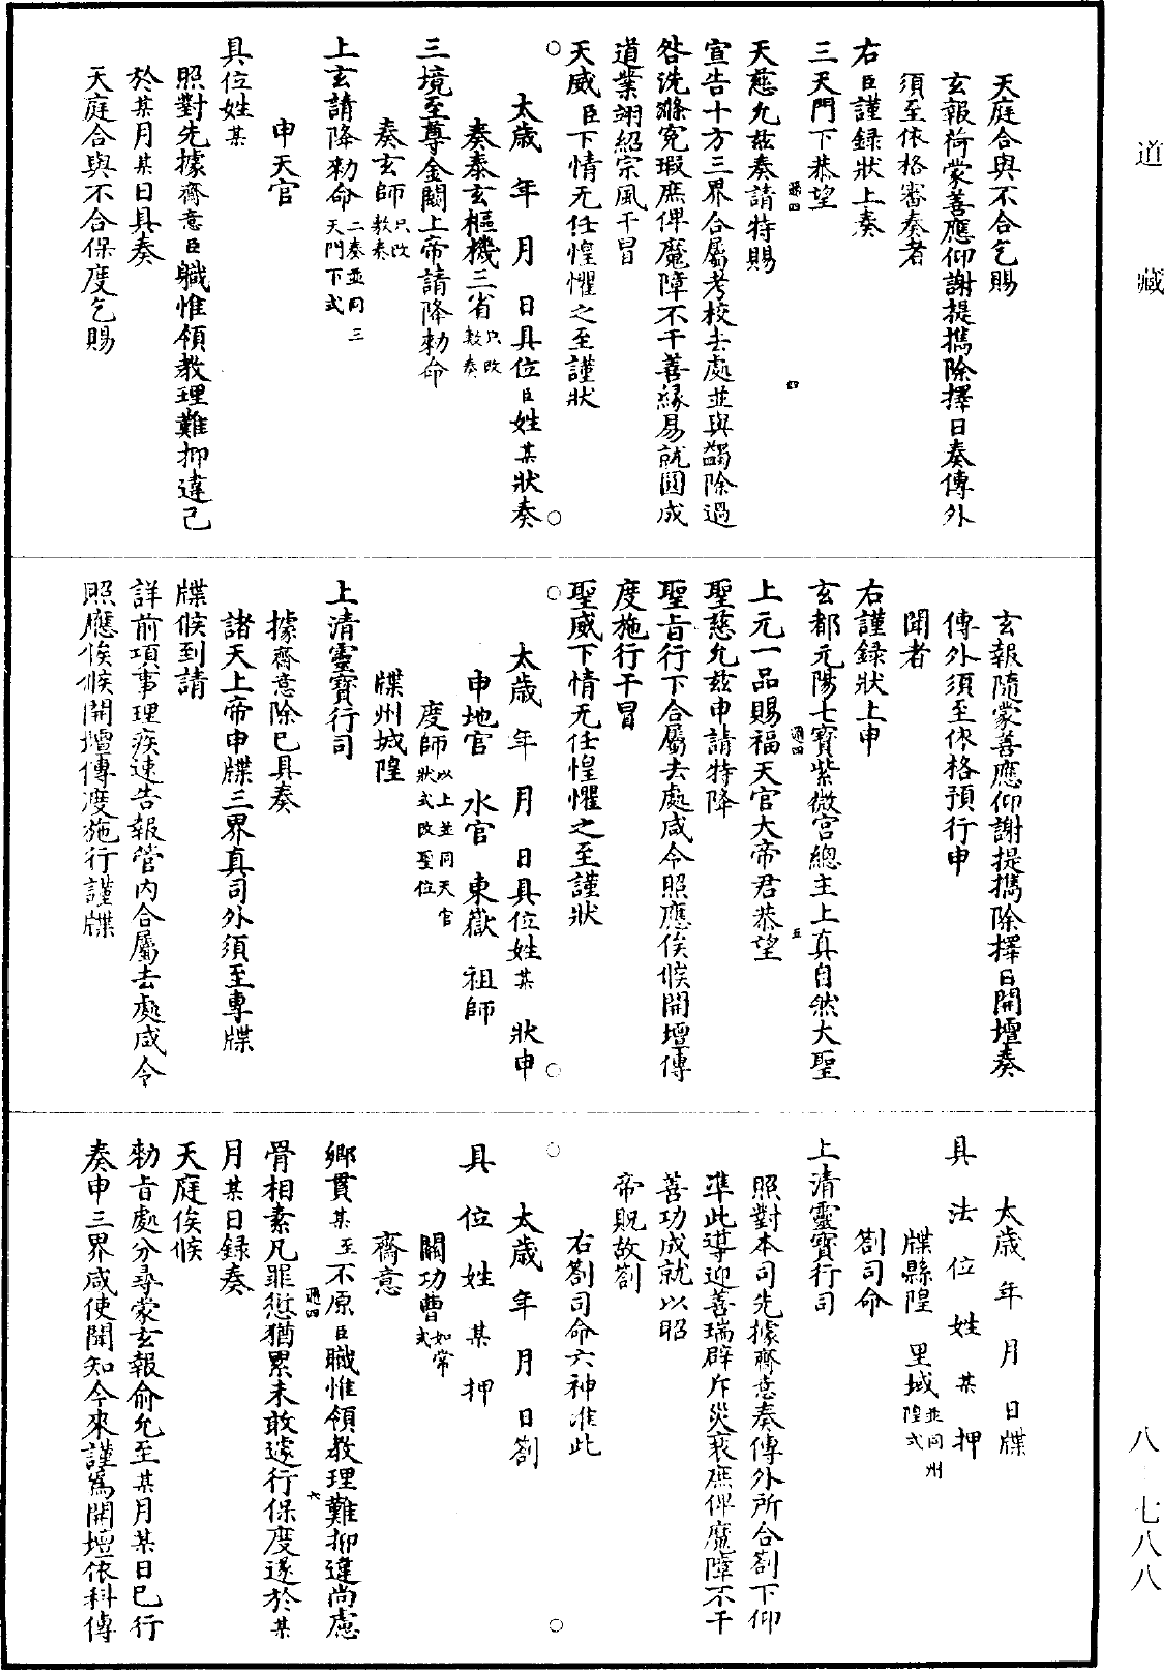 道藏
天庭合與不合乞賜
玄報荷蒙善應仰謝提携除擇日奏傳外
須至依格審奏者
右臣謹録狀上奏
三天門下恭望
通四
天慈允兹奏請特賜
四
宣告十方三界合屬考校去處並與蠲除過
咎洗滌寃瑕庶俾魔障不干善緣易就圓成
道業翊紹宗風干冒
天威臣下情无任惶懼之至謹狀
太歳年月日具位臣姓某狀奏
奏泰玄樞機三省只改敷奏
三境至尊金闕上帝請降勑命
奏玄師只改敷奏
上玄請降勑命二奏並同三天門下式
申天官
具位姓某
照對先據齋意臣職惟領教理難抑違已
於某月某日具奏
天庭合與不合保度乞賜
玄報隨蒙善應仰謝提携除擇日開壇奏
傳外須至依格預行申
聞者
右謹録狀上申
玄都元陽七寶紫微宮總主上真自然大聖
通四
五
上元一品賜福天官大帝君恭望
聖慈允兹申請特降
聖旨行下合屬去處咸令照應俟候開壇傳
度施行干冒
聖威下情无任惶懼之至謹狀
太歳年月日具位姓某狀申
申地官水官東嶽祖師
度師以上並同天官狀式改聖位
牒州城隍
上清靈寶行司
據齋意除已具奏
諸天上帝申牒三界真司外須至專牒
牒候到請
詳前項事理疾速告報管内合屬去處咸令
照應俟候開壇傳度施行謹牒
太歳年月日牒
具法位姓某押
牒縣隍里域並同州隍式
劄司命
上清靈寶行司
照對本司先據齋意奏傳外所合劄下仰
準此導迎善瑞辟斥災衺庶俾魔障不干
善功成就以昭
帝貺故劄
右劄司命六神准此
太歳年月日劄
具位姓某押
關功曹如常式
齋意
鄉貫某至不原臣職惟領教理難抑違尚慮
通四
六
骨相素凡罪愆猶累未敢遽行保度遂於某
月某日録奏
天庭俟候
勑旨處分尋蒙玄報俞允至某月某日已行
奏申三界咸使聞知今來謹爲開壇依科傳
八-七八八